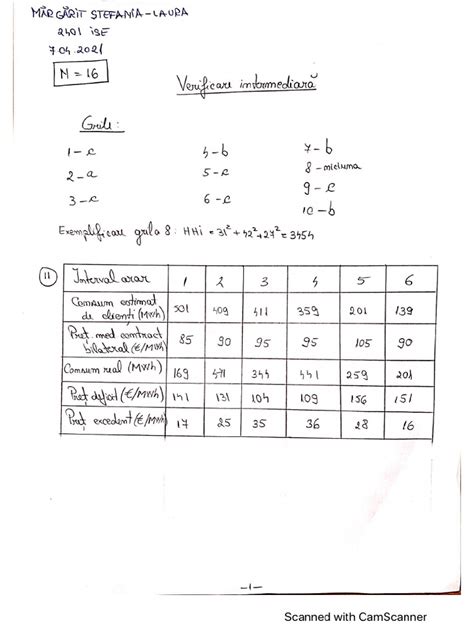 MĂRGĂRIT STEFANIA-LAURA
2401 ISE
7.04.2021
N = 16
Verificare intermediară
Grile:
1-c 4-b 7-b
2-a 5-c 8-niciuna
3-c 6-c 9-c
10-b
Exemplificare grila 8: HHi = 31² + 42² + 27² = 3454
11
Interval orar 1 2 3 4 5 6
Consum estimat de clienți (MWh) 501 409 411 359 201 139
Preț med contract bilateral (€/MWh) 85 90 95 95 105 90
Consum real (MWh) 169 471 344 441 259 201
Preț deficit (€/MWh) 141 131 104 109 156 151
Preț excedent (€/MWh) 17 25 35 36 28 16
-1-
Scanned with CamScanner